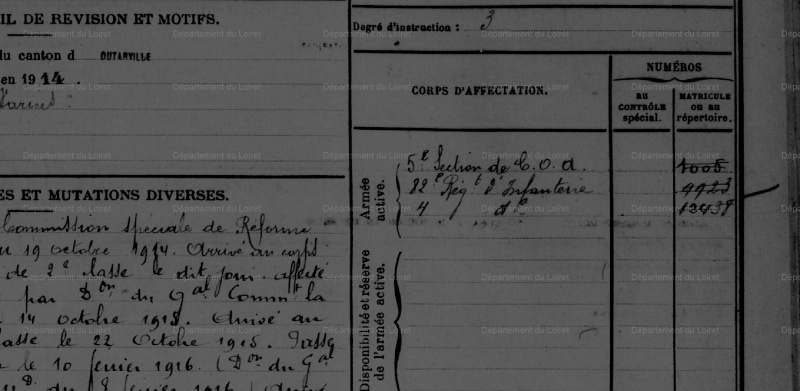 IL DE REVISION ET MOTIFS.
du canton d OUTARVILLE
en 1914.
ES ET MUTATIONS DIVERSES.
Commission spéciale de Réforme
du 19 octobre 1914. Arrivé au corps
de 2e classe le dit jour. affecté
par Don du Gal Commt la
14 octobre 1915. Arrivé au
lasse le 22 octobre 1915. Passé
le 10 février 1916. (Don du Gal
du 8 février 1916) Arrivé
Degré d'instruction : 3
CORPS D'AFFECTATION.
NUMÉROS
au CONTRÔLE spécial.
MATRICULE ou au répertoire.
Armée active.
5e Section de C. O. A.
82e Régt d'Infanterie
4 do
Disponibilité et réserve de l'armée active.
Département du Loiret